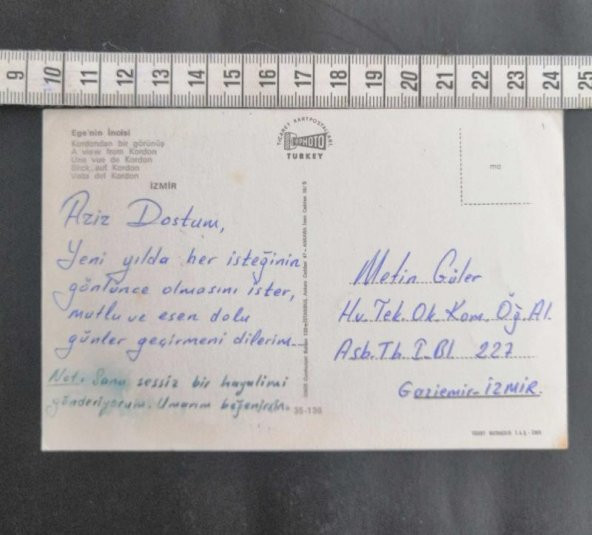 9 10 11 12 13 14 15 16 17 18 19 20 21 22 23 24 25
Ege'nin İncisi
Kordondan bir görünüş
A view from Kordon
Une vue de Kordon
Blick auf Kordon
Vista del Kordon
İZMİR
TİCARET KARTPOSTALLARI
TURKEY
Aziz Dostum,
Yeni yılda her isteğinin
gönlünce olmasını ister,
mutlu ve esen dolu
günler geçirmeni dilerim.
Not: Sana sessiz bir hayalimi
gönderiyorum. Umarım beğenirsin.
35-136
Metin Güler
Hv. Tek. Ok. Kom. Öğ. Al.
Asb. Tb. I. Bl. 227
Gaziemir-İZMİR.